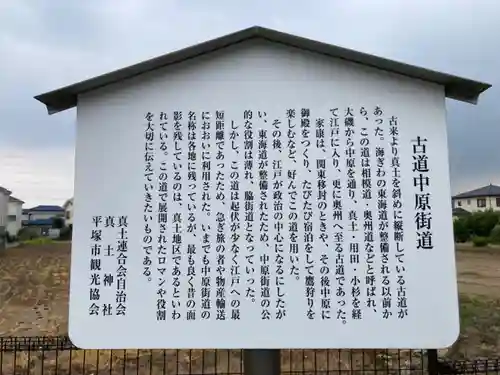 古道中原街道
古来より真土を斜めに縦断している古道が
あった。海ぎわの東海道が整備される以前か
ら、この道は相模道・奥州道などと呼ばれ、
大磯から中原を通り、真土・用田・小杉を経
て江戸に入り、更に奥州へ至る古道であった。
家康は、関東移封のときや、その後中原に
御殿をつくり、たびたび宿泊をして鷹狩りを
楽しむなど、好んでこの道を用いた。
その後、江戸が政治の中心になるにしたが
い、東海道が整備されたため、中原街道の公
的な役割は薄れ、脇街道となっていった。
しかし、この道は起伏が少なく江戸への最
短距離であったため、急ぎ旅の者や物産輸送
におおいに利用された。いまでも中原街道の
名称は各地に残っているが、最も良く昔の面
影を残しているのは、真土地区であるといわ
れている。この道で展開されたロマンや役割
を大切に伝えていきたいものである。
真土連合会自治会
真土神社
平塚市観光協会